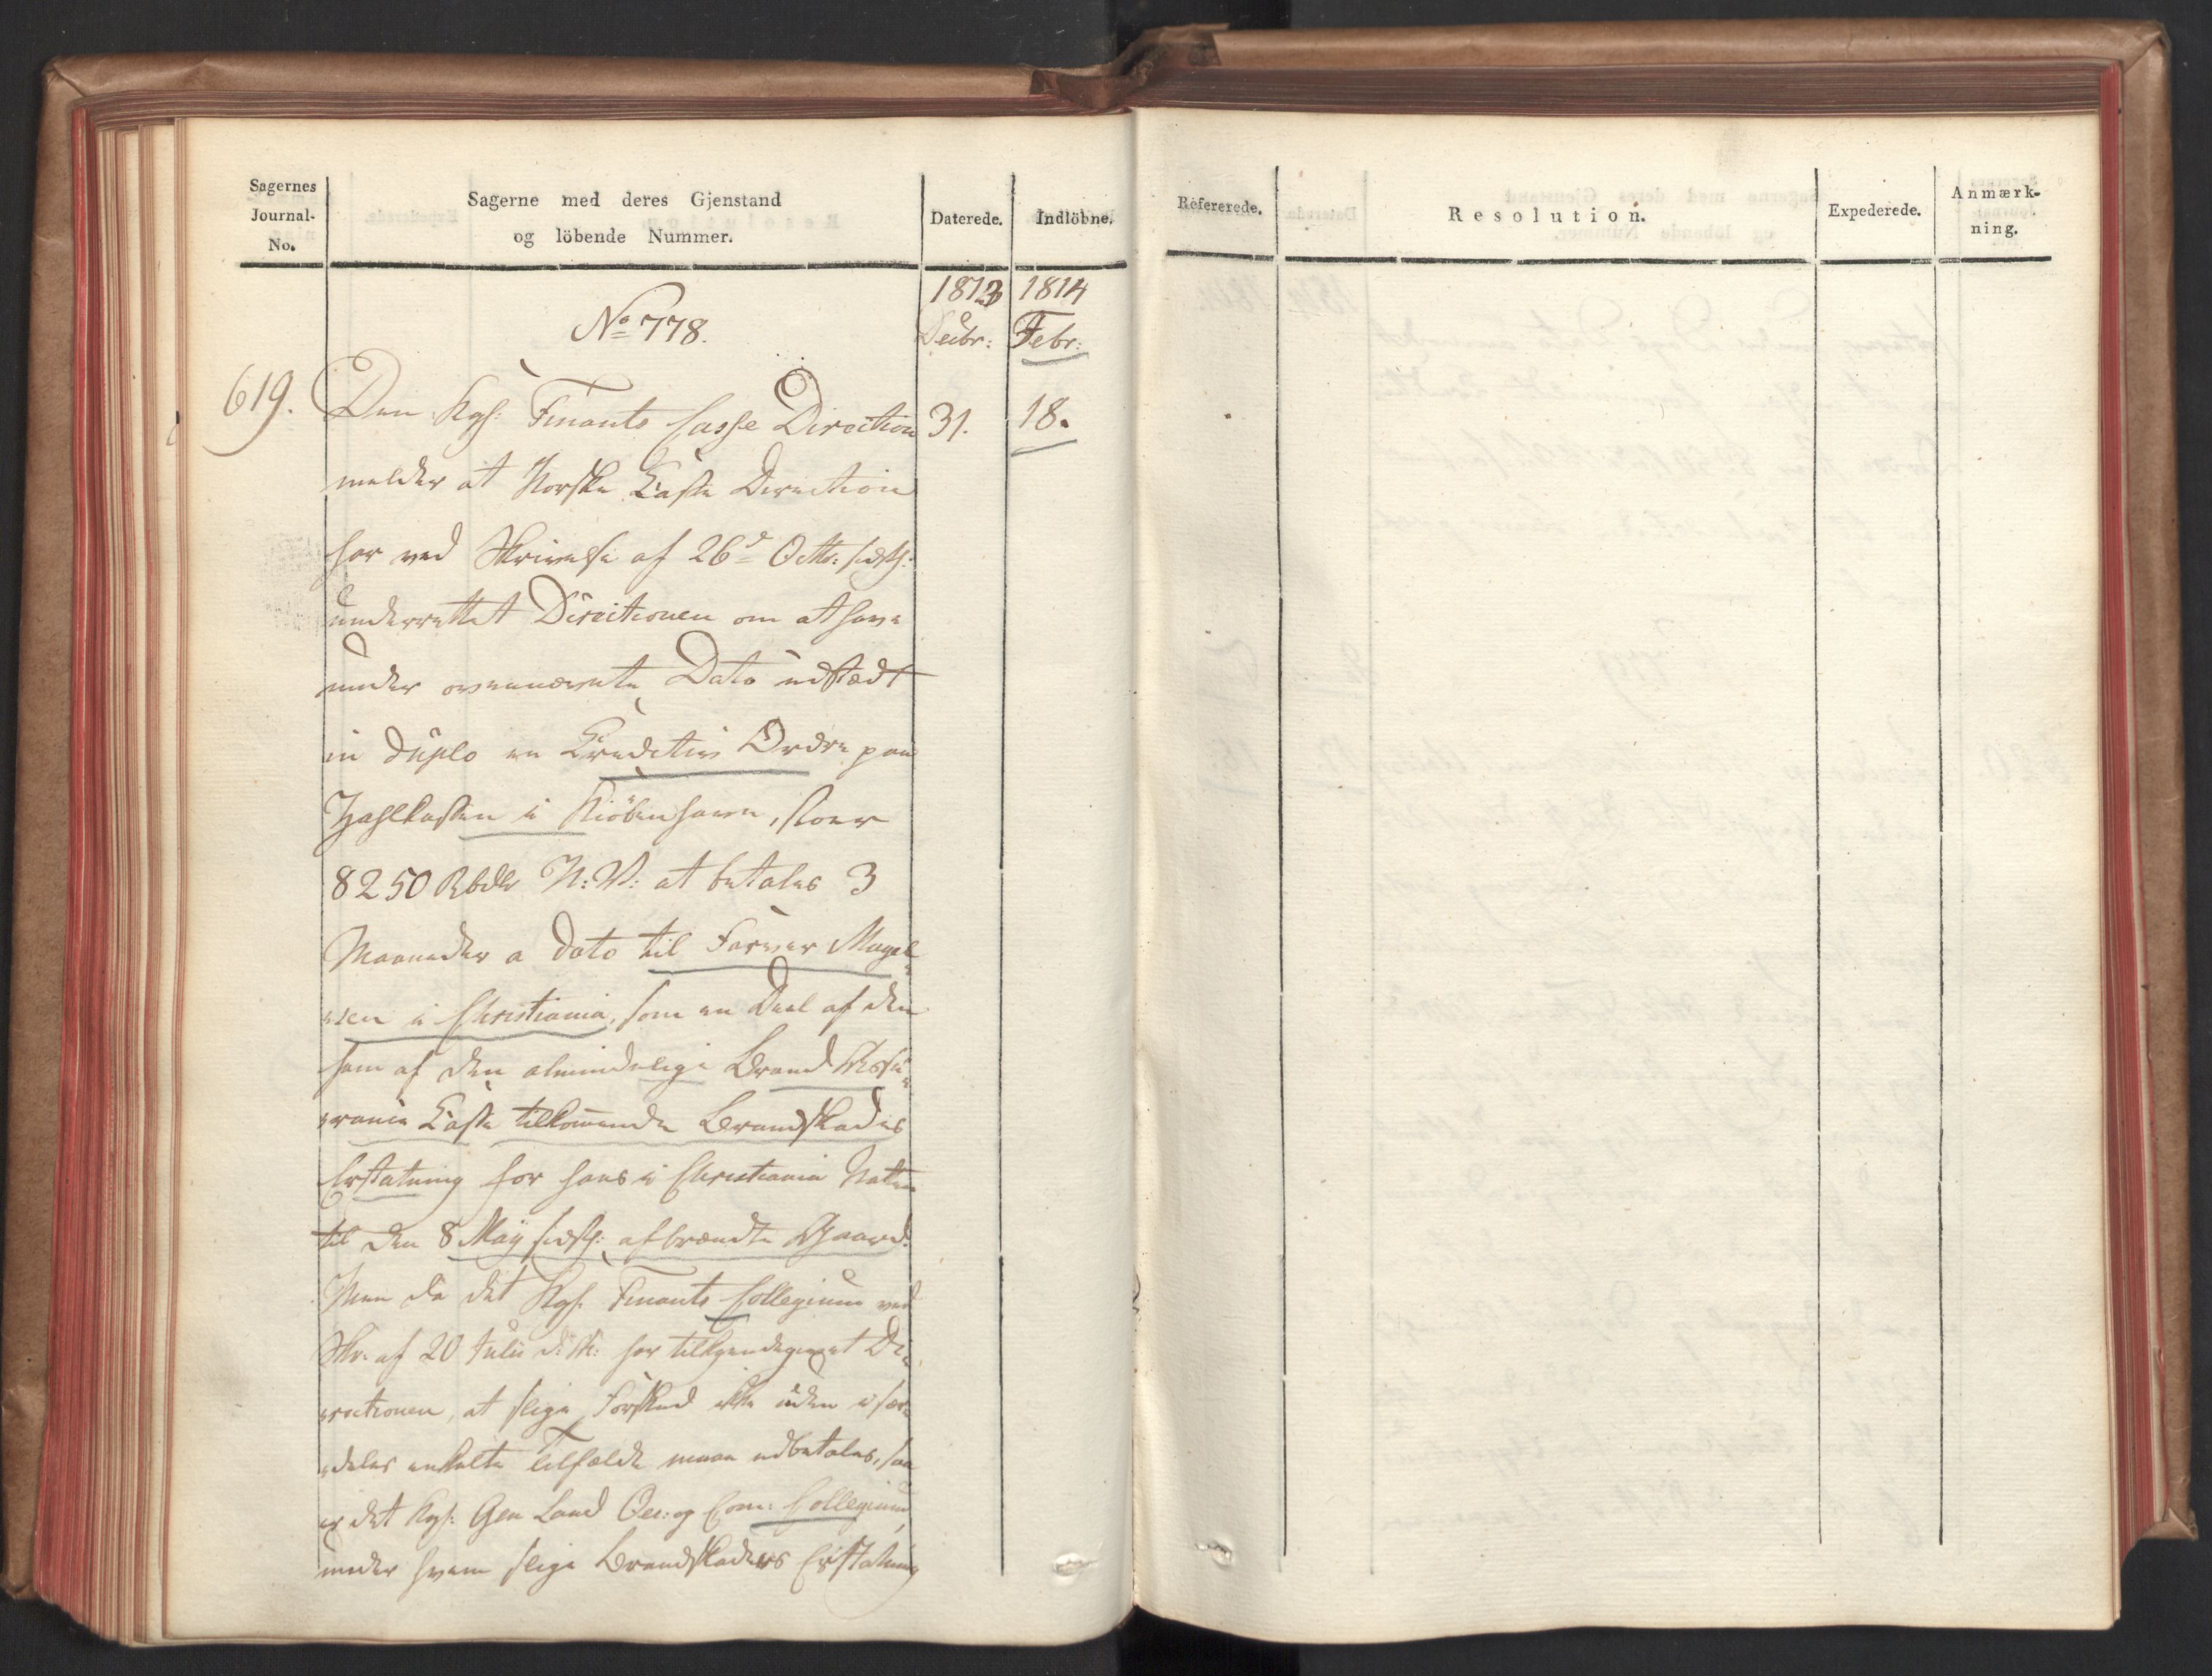 Sagernes
Journal-
No.
Sagerne med deres Gjenstand
og löbende Nummer.
Daterede.
Indlöbne.
1813
Decbr:
1814
Febr:
No 778.
619.
Den Kgl: Finants Casse Direction
31.
18.
melder at Norske Casse Direction
har ved Skrivelse af 26d Octbr: sidstl:
underrettet Directionen om at have
under ovennævnte Dato udstædt
in duplo en Creditiv Ordre paa
Zahlkassen i Kiöbenhavn, stoer
8250 Rbdlr N:V: at betales 3
Maaneder a dato til Farver Mogen
sen i Christiania, som en Deel af den
ham af den almindelige Brand Assu
rance Casse tilkommende Brandskades
Erstatning for hans i Christiania Natten
til den 8 May sidstl: afbrændte Gaard.
Men da det Kgl. Finants Collegium ved
Skr. af 20 Julii har tilkjendegivet Di
rectionen, at slige Forskud ikke uden i sær
deles enkelte Tilfælde maae udbetales, saa
er det Kgl: Gen Land Oec: og Com: Collegium
under hvem slige Brandskaders Erstatning
Refererede.
Resolution.
Expederede.
Anmærk-
ning.